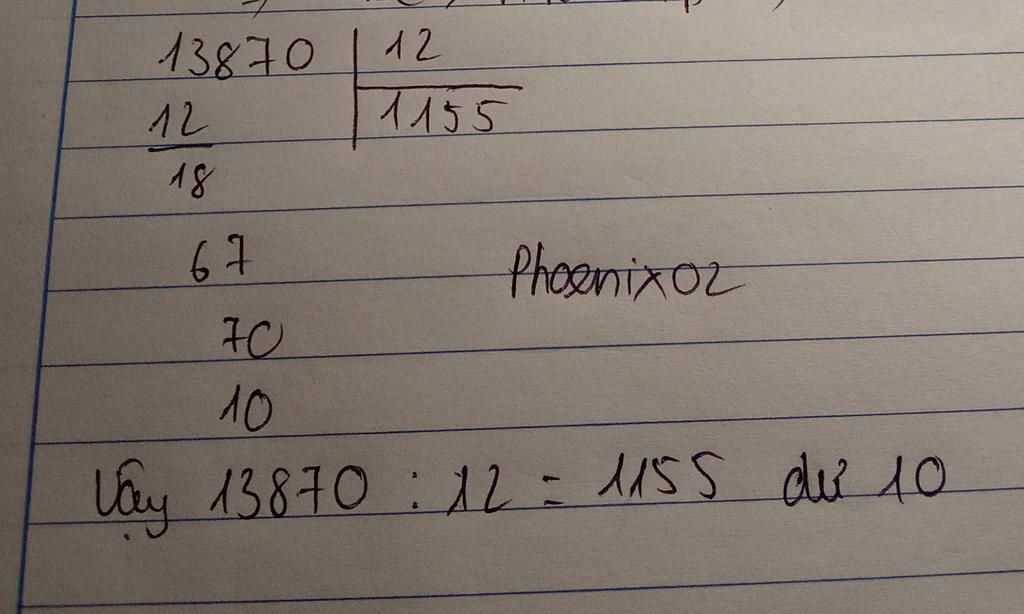 13870 | 12
12 | 1155
18
67
Phoenix02
70
10
Vậy 13870 : 12 = 1155 dư 10